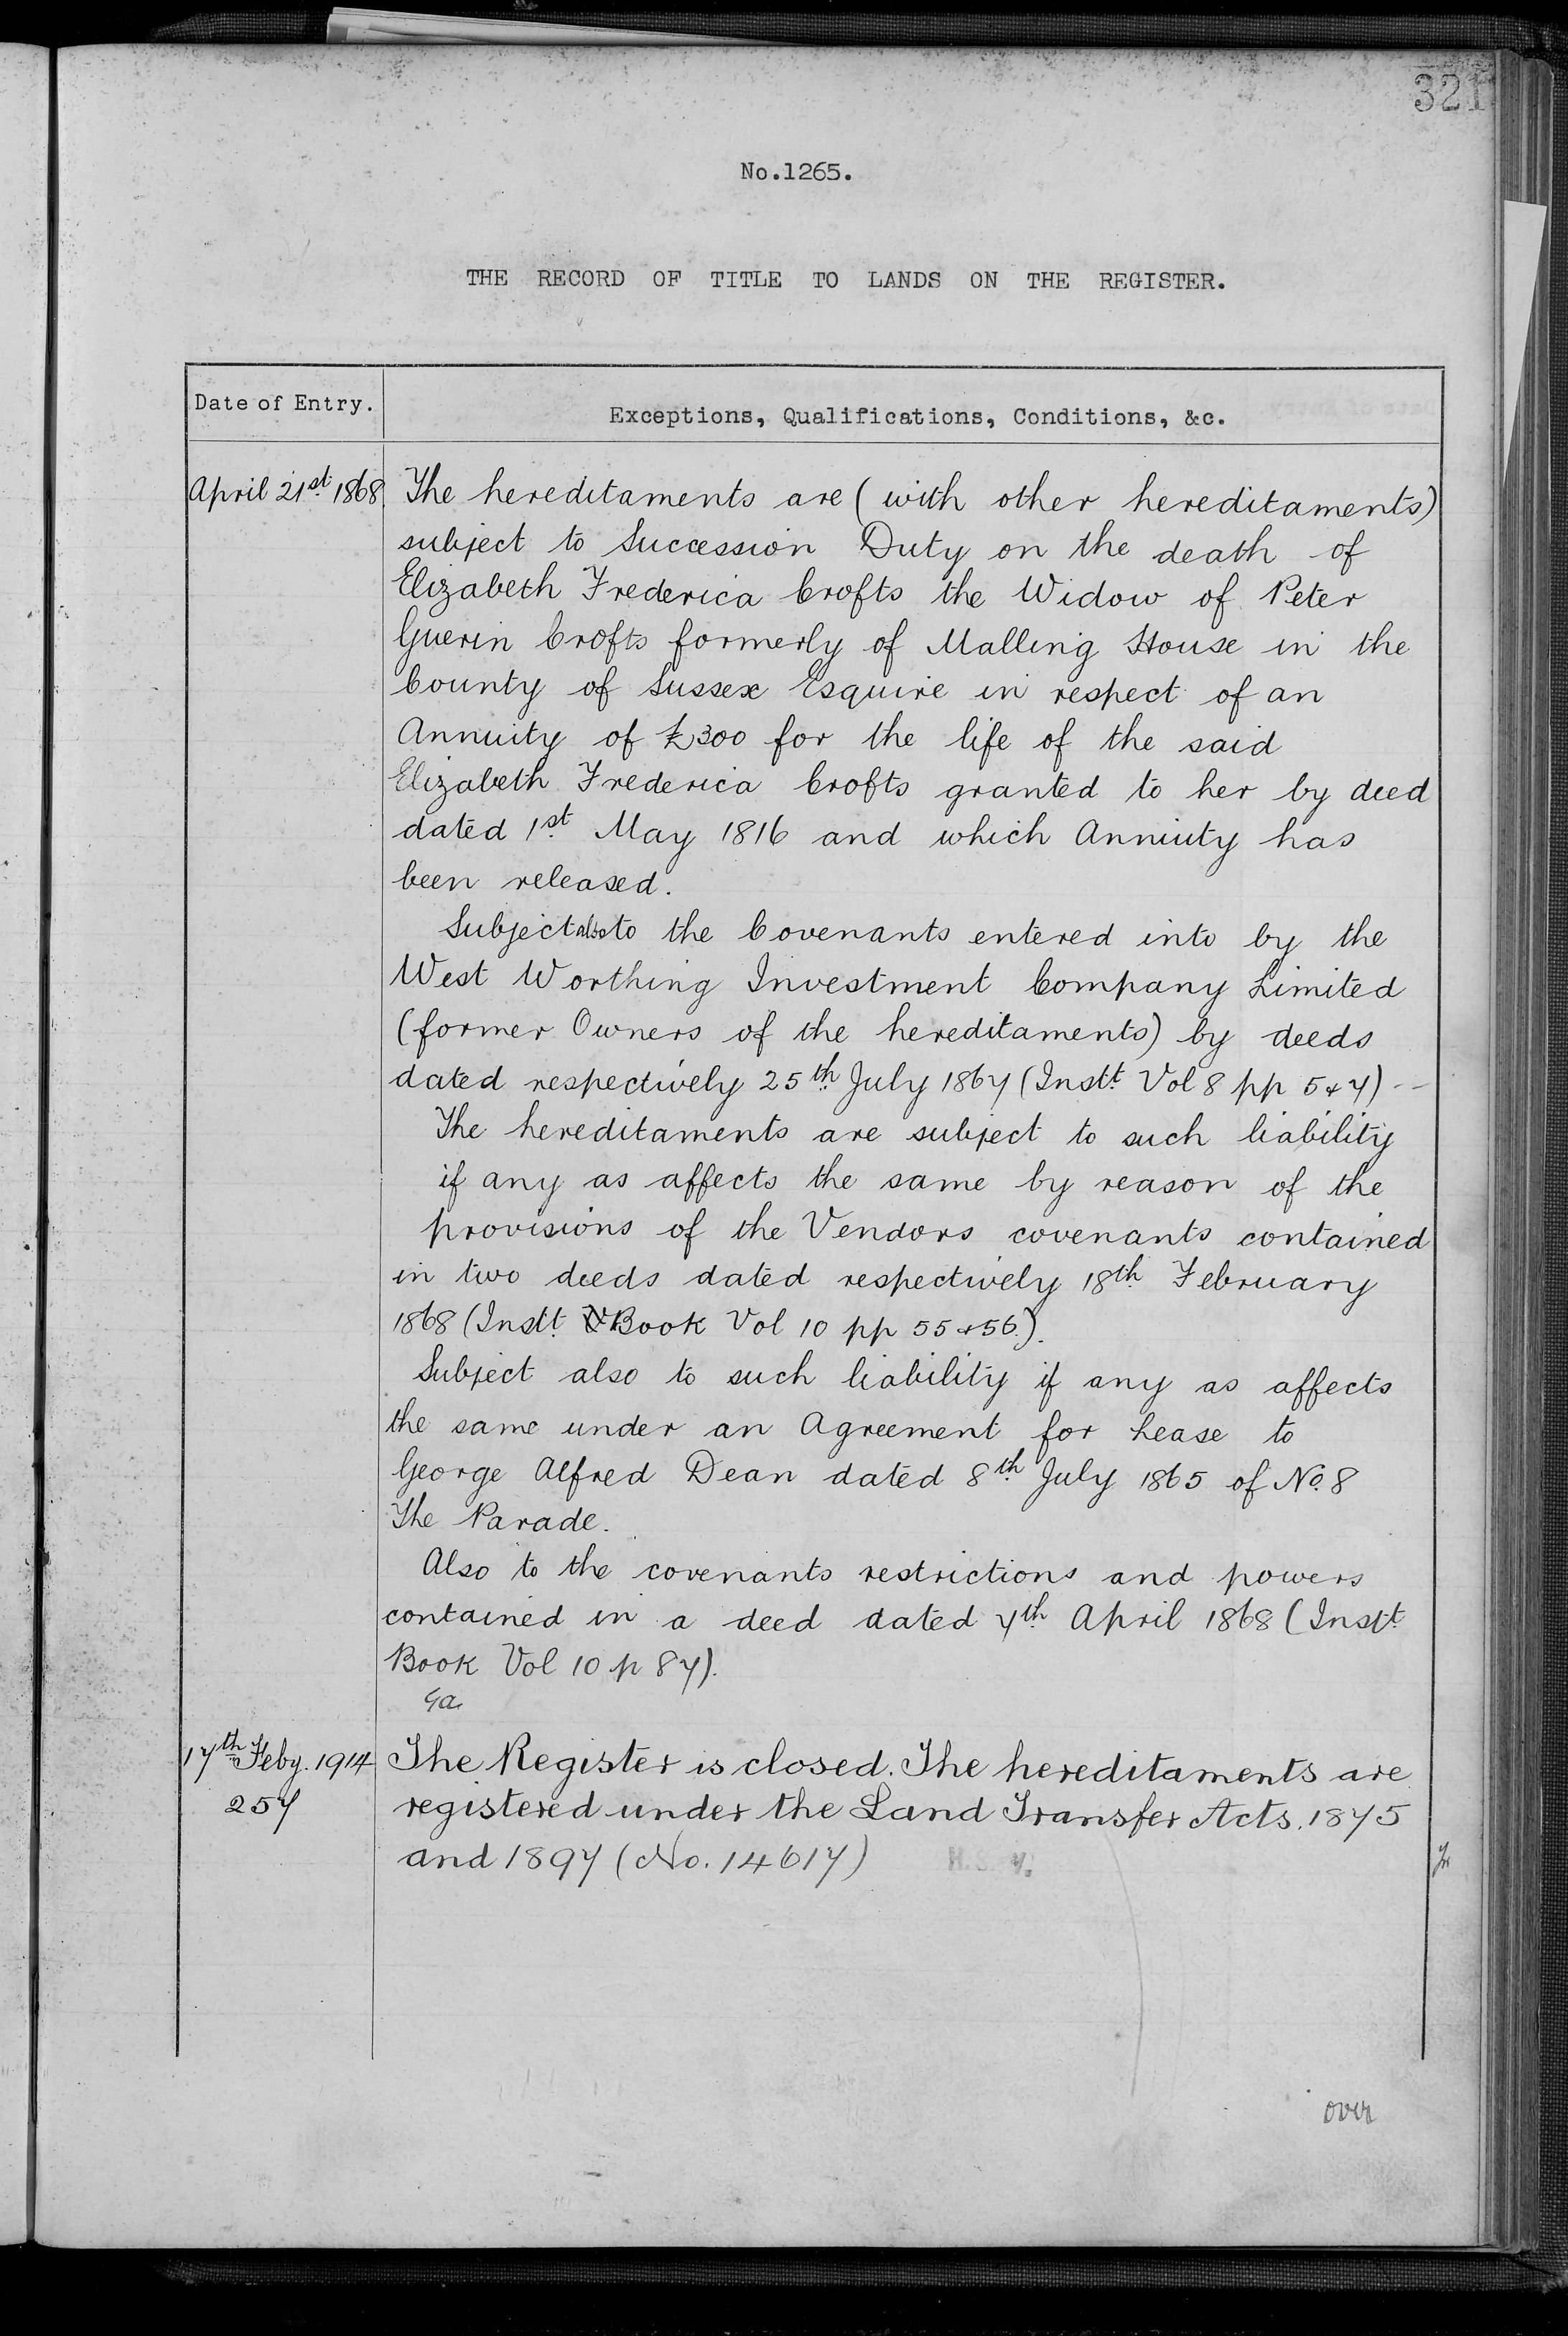 321
No.1265.
THE RECORD OF TITLE TO LANDS ON THE REGISTER.
Date of Entry.
Exceptions, Qualifications, Conditions, &c.
April 21st 1868.
The hereditaments are (with other hereditaments)
subject to Succession Duty on the death of
Elizabeth Frederica Crofts the Widow of Peter
Guerin Crofts formerly of Malling House in the
County of Sussex Esquire in respect of an
Annuity of £300 for the life of the said
Elizabeth Frederica Crofts granted to her by deed
dated 1st May 1816 and which Annuity has
been released.
Subject also to the Covenants entered into by the
West Worthing Investment Company Limited
(former Owners of the hereditaments) by deeds
dated respectively 25th July 1867 (Instt Vol 8 pp 5 & 7) -
The hereditaments are subject to such liability
if any as affects the same by reason of the
provisions of the Vendors covenants contained
in two deeds dated respectively 18th February
1868 (Instt. Book Vol 10 pp 55 & 56).
Subject also to such liability if any as affects
the same under an Agreement for Lease to
George Alfred Dean dated 8th July 1865 of No. 8
The Parade.
Also to the covenants restrictions and powers
contained in a deed dated 7th April 1868 (Instt
Book Vol 10 p 87).
17th Feby. 1914
257
The Register is closed. The hereditaments are
registered under the Land Transfer Acts. 1875
and 1897 (No. 14617)
over